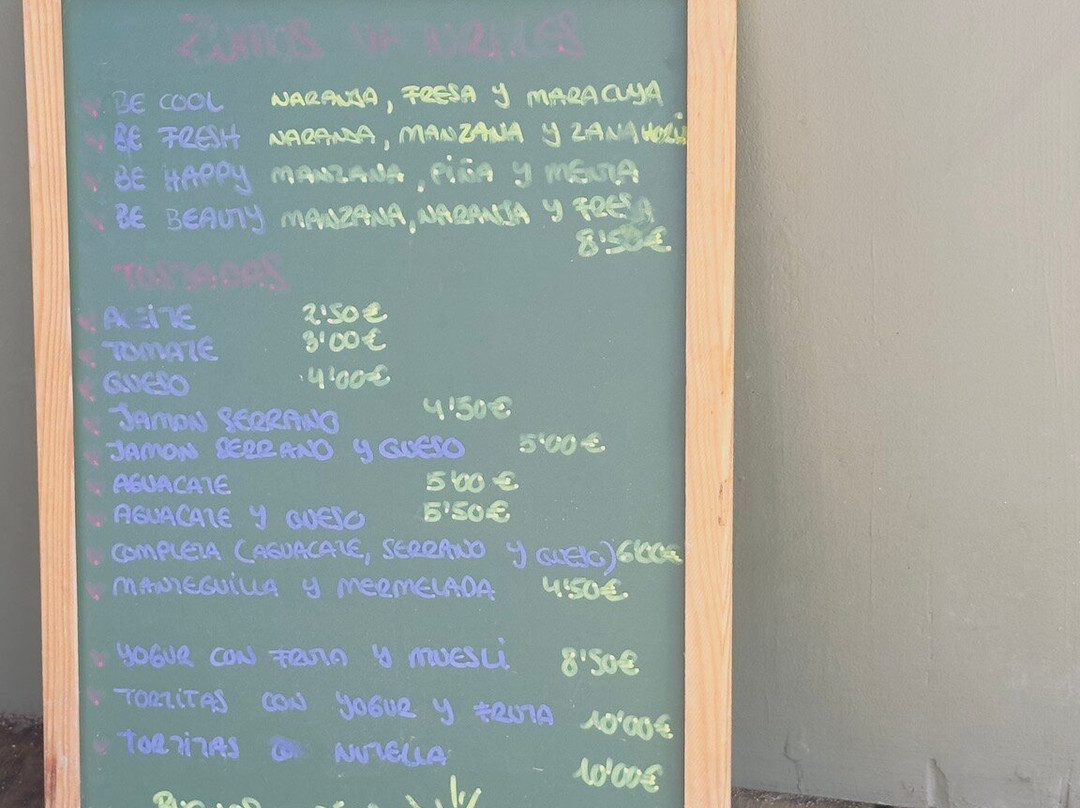 ZUMOS NATURALES
BE COOL NARANJA, FRESA Y MARACUYA
BE FRESH NARANJA, MANZANA Y ZANAHORIA
BE HAPPY MANZANA, PIÑA Y MENTA
BE BEAUTY MANZANA, NARANJA Y FRESA
8'50€
TOSTADAS
ACEITE 2'50€
TOMATE 3'00€
QUESO 4'00€
JAMON SERRANO 4'50€
JAMON SERRANO Y QUESO 5'00€
AGUACATE 5'00€
AGUACATE Y QUESO 5'50€
COMPLETA (AGUACATE, SERRANO Y QUESO) 6'00€
MANTEGUILLA Y MERMELADA 4'50€
YOGUR CON FRUTA Y MUESLI 8'50€
TORTITAS CON YOGUR Y FRUTA 10'00€
TORTITAS NUTELLA
10'00€